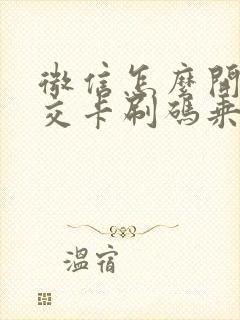 微信怎麼開
交卡刷碼乘
溫宿